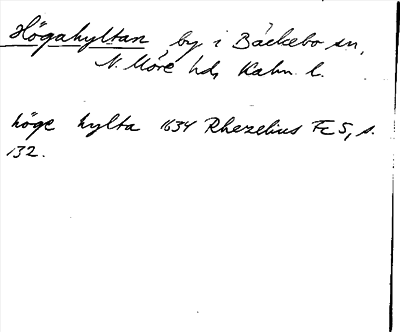 Högahyltan by i Bäckebo sn,
N. Möre hd, Kalm. l.
höge hylta 1634 Rhezelius Fc 5, s.
132.